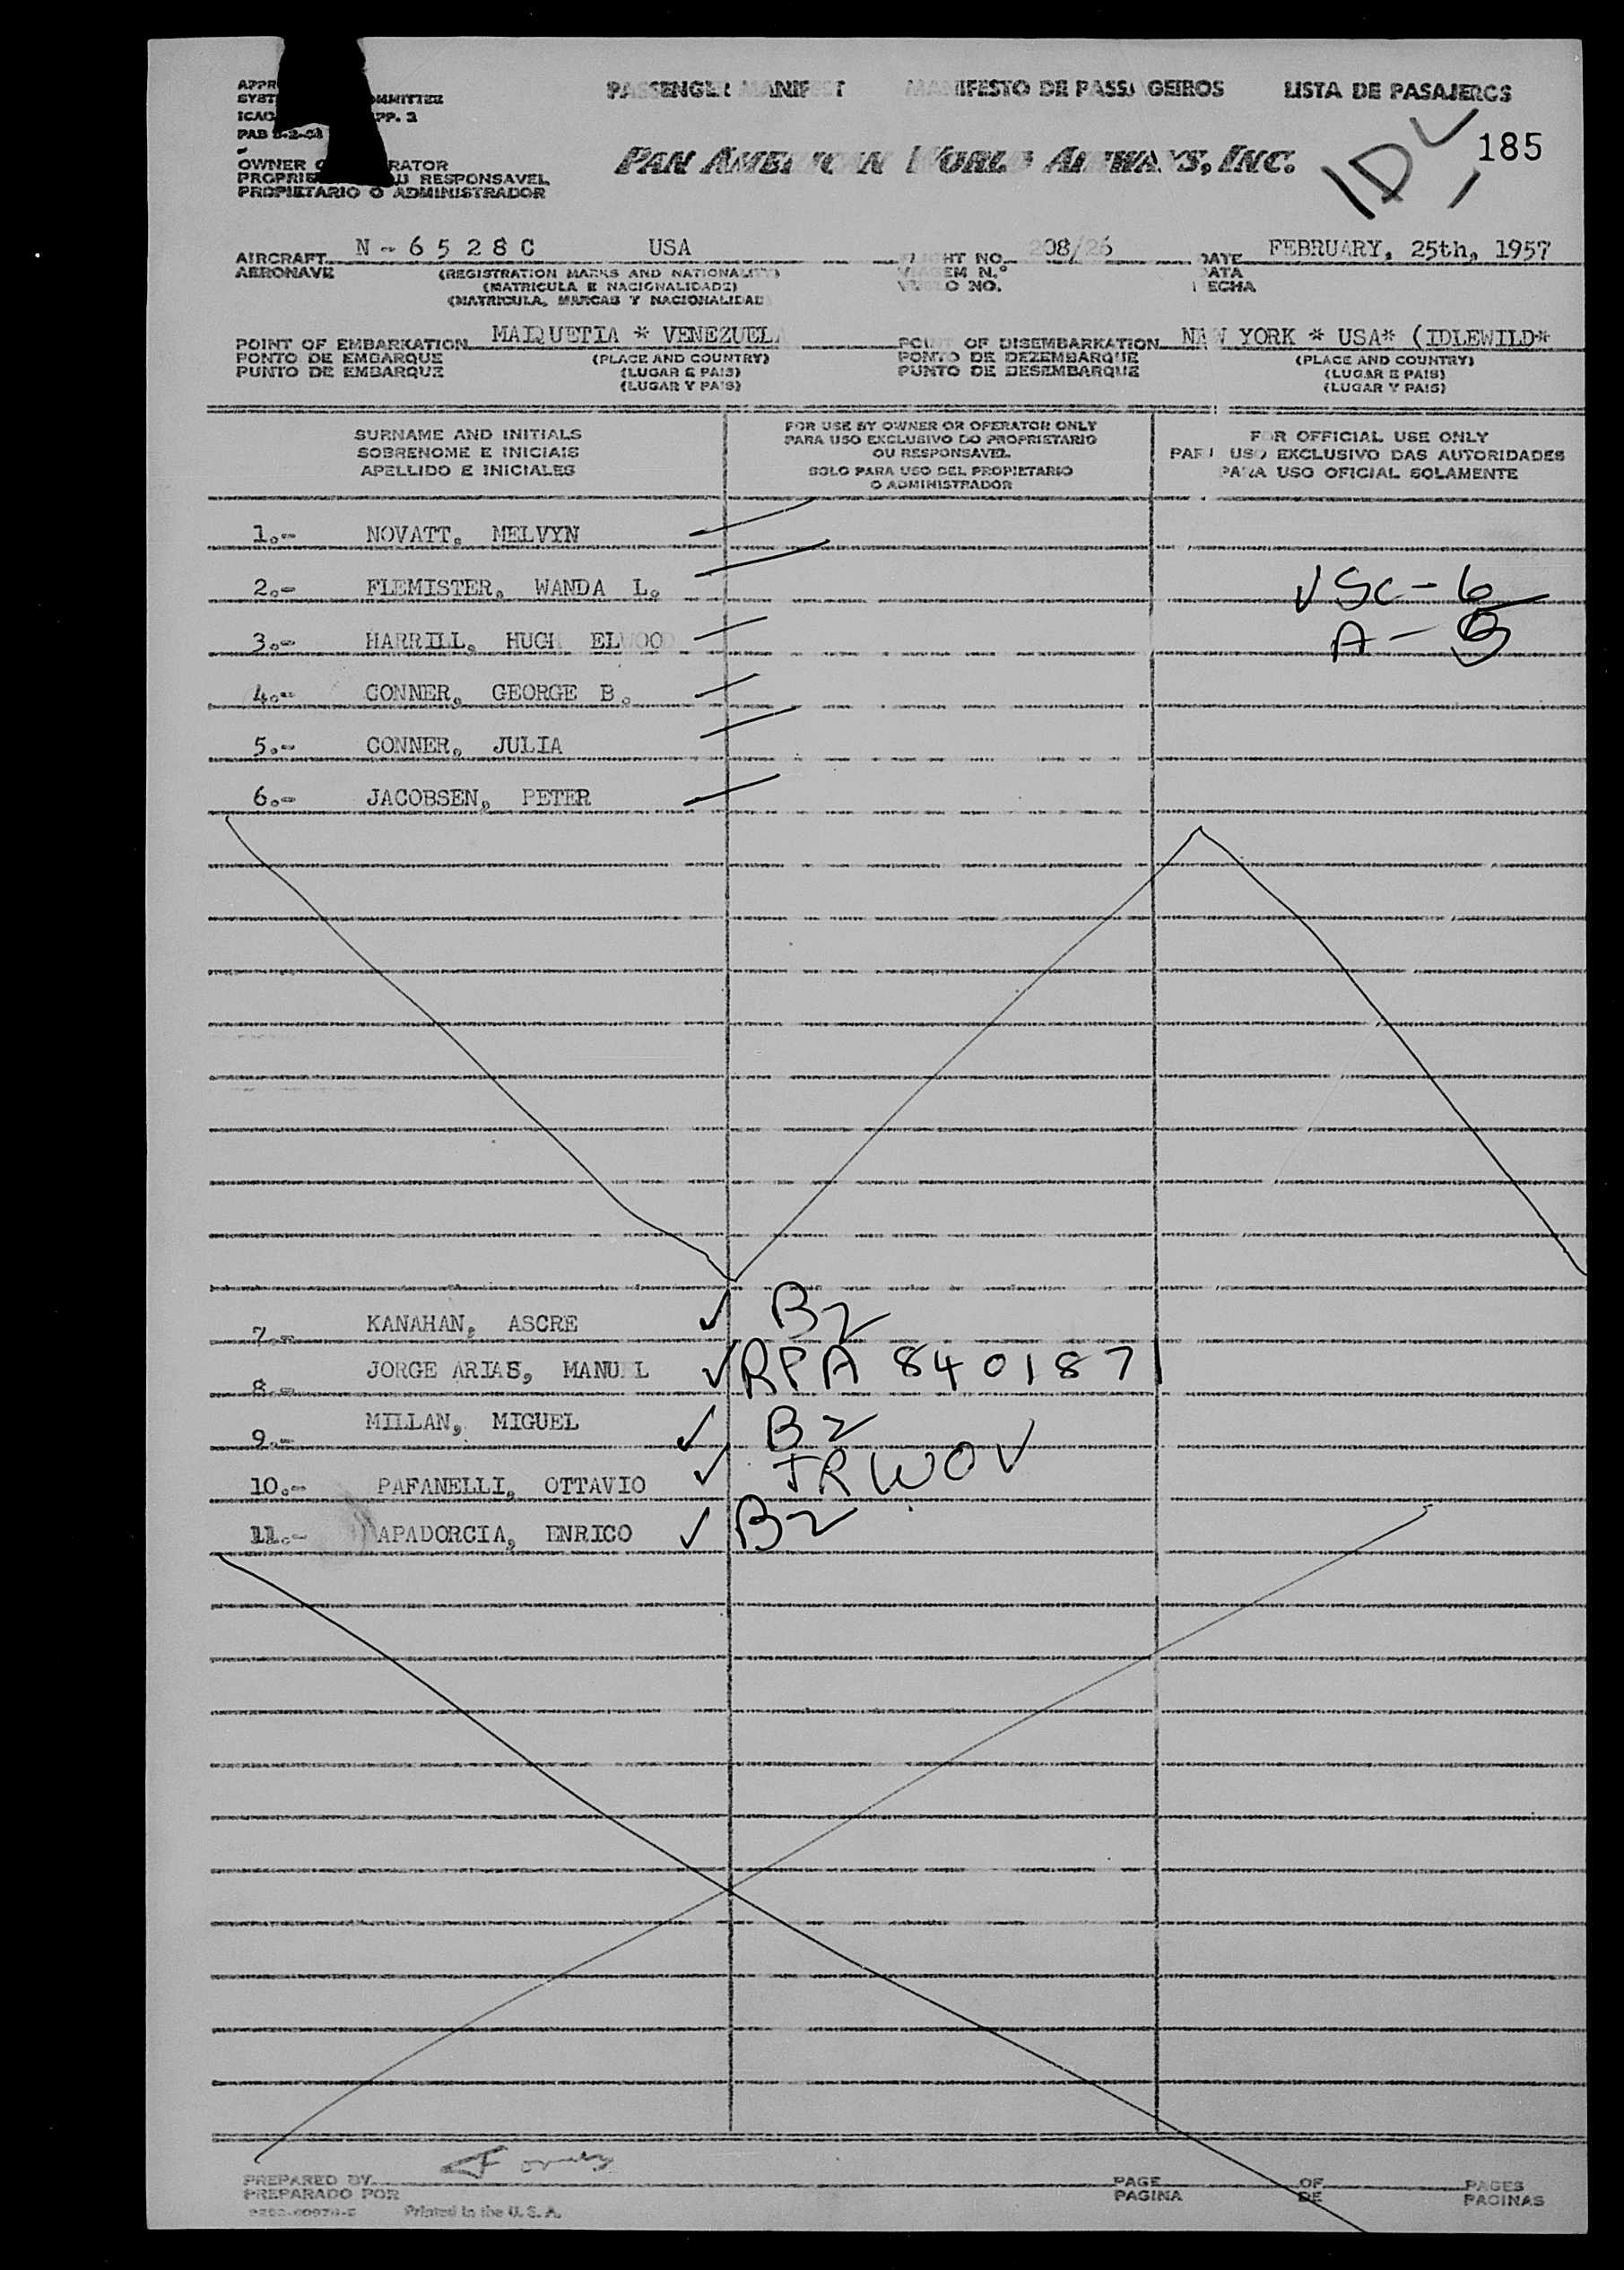 PASSENGER MANIFEST MANIFESTO DE PASSAGEIROS LISTA DE PASAJEROS
ICAO PP. 2
PAB
PAN AMERICAN WORLD AIRWAYS, INC.
IDL
185
OWNER O RATOR
PROPRIE U RESPONSAVEL
PROPIETARIO O ADMINISTRADOR
AIRCRAFT N-6528C USA FLIGHT NO. 208/26 DATE FEBRUARY, 25th, 1957
AERONAVE (REGISTRATION MARKS AND NATIONALITY) VIAGEM N.º DATA
(MATRICULA E NACIONALIDADE) VUELO NO. FECHA
(MATRICULA, MARCAS Y NACIONALIDAD
POINT OF EMBARKATION MAIQUETIA * VENEZUELA POINT OF DISEMBARKATION NEW YORK * USA* (IDLEWILD*
PONTO DE EMBARQUE (PLACE AND COUNTRY) PONTO DE DEZEMBARQUE (PLACE AND COUNTRY)
PUNTO DE EMBARQUE (LUGAR E PAIS) PUNTO DE DESEMBARQUE (LUGAR E PAIS)
(LUGAR Y PAIS) (LUGAR Y PAIS)
SURNAME AND INITIALS
SOBRENOME E INICIAIS
APELLIDO E INICIALES
FOR USE BY OWNER OR OPERATOR ONLY
PARA USO EXCLUSIVO DO PROPRIETARIO
OU RESPONSAVEL
SOLO PARA USO DEL PROPIETARIO
O ADMINISTRADOR
FOR OFFICIAL USE ONLY
PARA USO EXCLUSIVO DAS AUTORIDADES
PARA USO OFICIAL SOLAMENTE
1.- NOVATT, MELVYN
2.- FLEMISTER, WANDA L. ✓ SC - 6
3.- HARRILL, HUGH ELWOOD A - 5
4.- CONNER, GEORGE B.
5.- CONNER, JULIA
6.- JACOBSEN, PETER
7.- KANAHAN, ASCRE ✓ B2
8.- JORGE ARIAS, MANUEL ✓ RPA 8401871
9.- MILLAN, MIGUEL ✓ B2
10.- PAFANELLI, OTTAVIO ✓ TRWOV
11.- APADORCIA, ENRICO ✓ B2
PREPARED BY PAGE OF PAGES
PREPARADO POR PAGINA DE PAGINAS
Printed in the U.S.A.